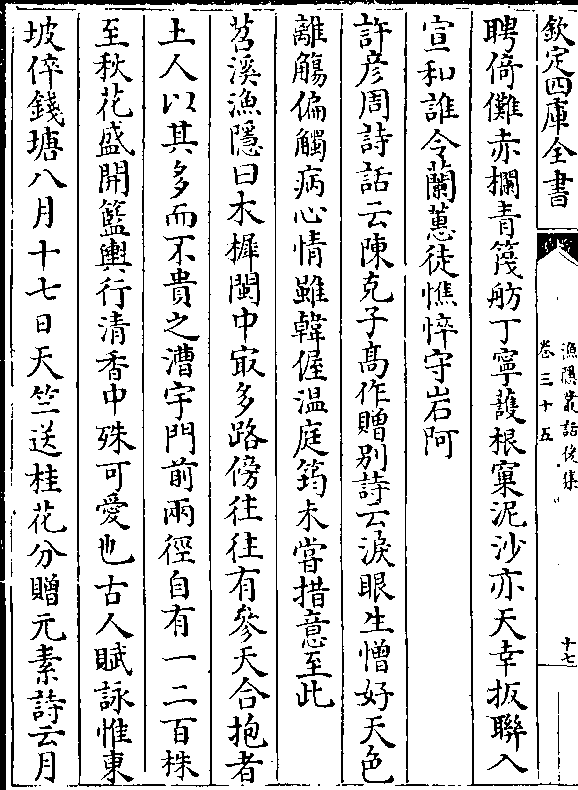 欽定四庫全書
漁隱叢話後集
卷三十五
十七
聘倚儺赤欄青篾舫丁寧護根窠泥沙亦天幸扳聯入
宣和誰令蘭蕙徒憔悴守岩阿
許彦周詩話云陳克子髙作贈别詩云淚眼生憎好天色
離觴偏觸病心情雖韓偓温庭筠未嘗措意至此
苕溪漁隱曰木樨閩中㝡多路傍往往有參天合抱者
土人以其多而不貴之漕宇門前兩徑自有一二百株
至秋花盛開籃輿行清香中殊可愛也古人賦詠惟東
坡倅錢塘八月十七日天竺送桂花分贈元素詩云月